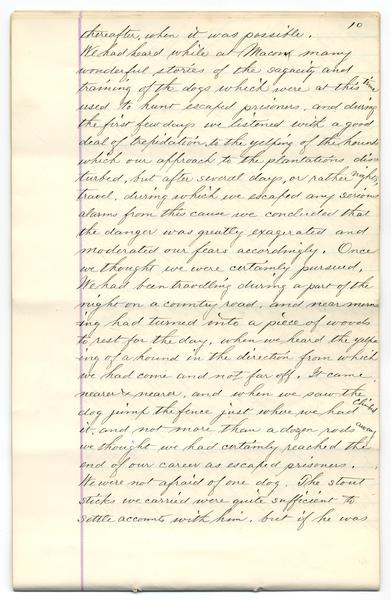 10
thereafter, when it was possible.
We had heard while at Macon many
wonderful stories of the sagacity and
training of the dogs which were at this time
used to hunt escaped prisoners, and during
the first few days we listened with a good
deal of trepidation to the yelping of the hounds
which our approach to the plantations dis
turbed, but after several days, or rather nights,
travel, during which we escaped any serious
alarm from this cause we concluded that
the danger was greatly exagerated and
moderated our fears accordingly. Once
we thought we were certainly pursued.
We had been travelling during a part of the
night on a country road, and near morn
ing had turned into a piece of woods
to rest for the day, when we heard the yelp
ing of a hound in the direction from which
we had come and not far off. It came
nearer & nearer, and when we saw the
dog jump the fence just where we had climbed
it, and not more than a dozen rods away
we thought we had certainly reached the
end of our career as escaped prisoners.
We were not afraid of one dog. The stout
sticks we carried were quite sufficient to
settle accounts with him, but if he was